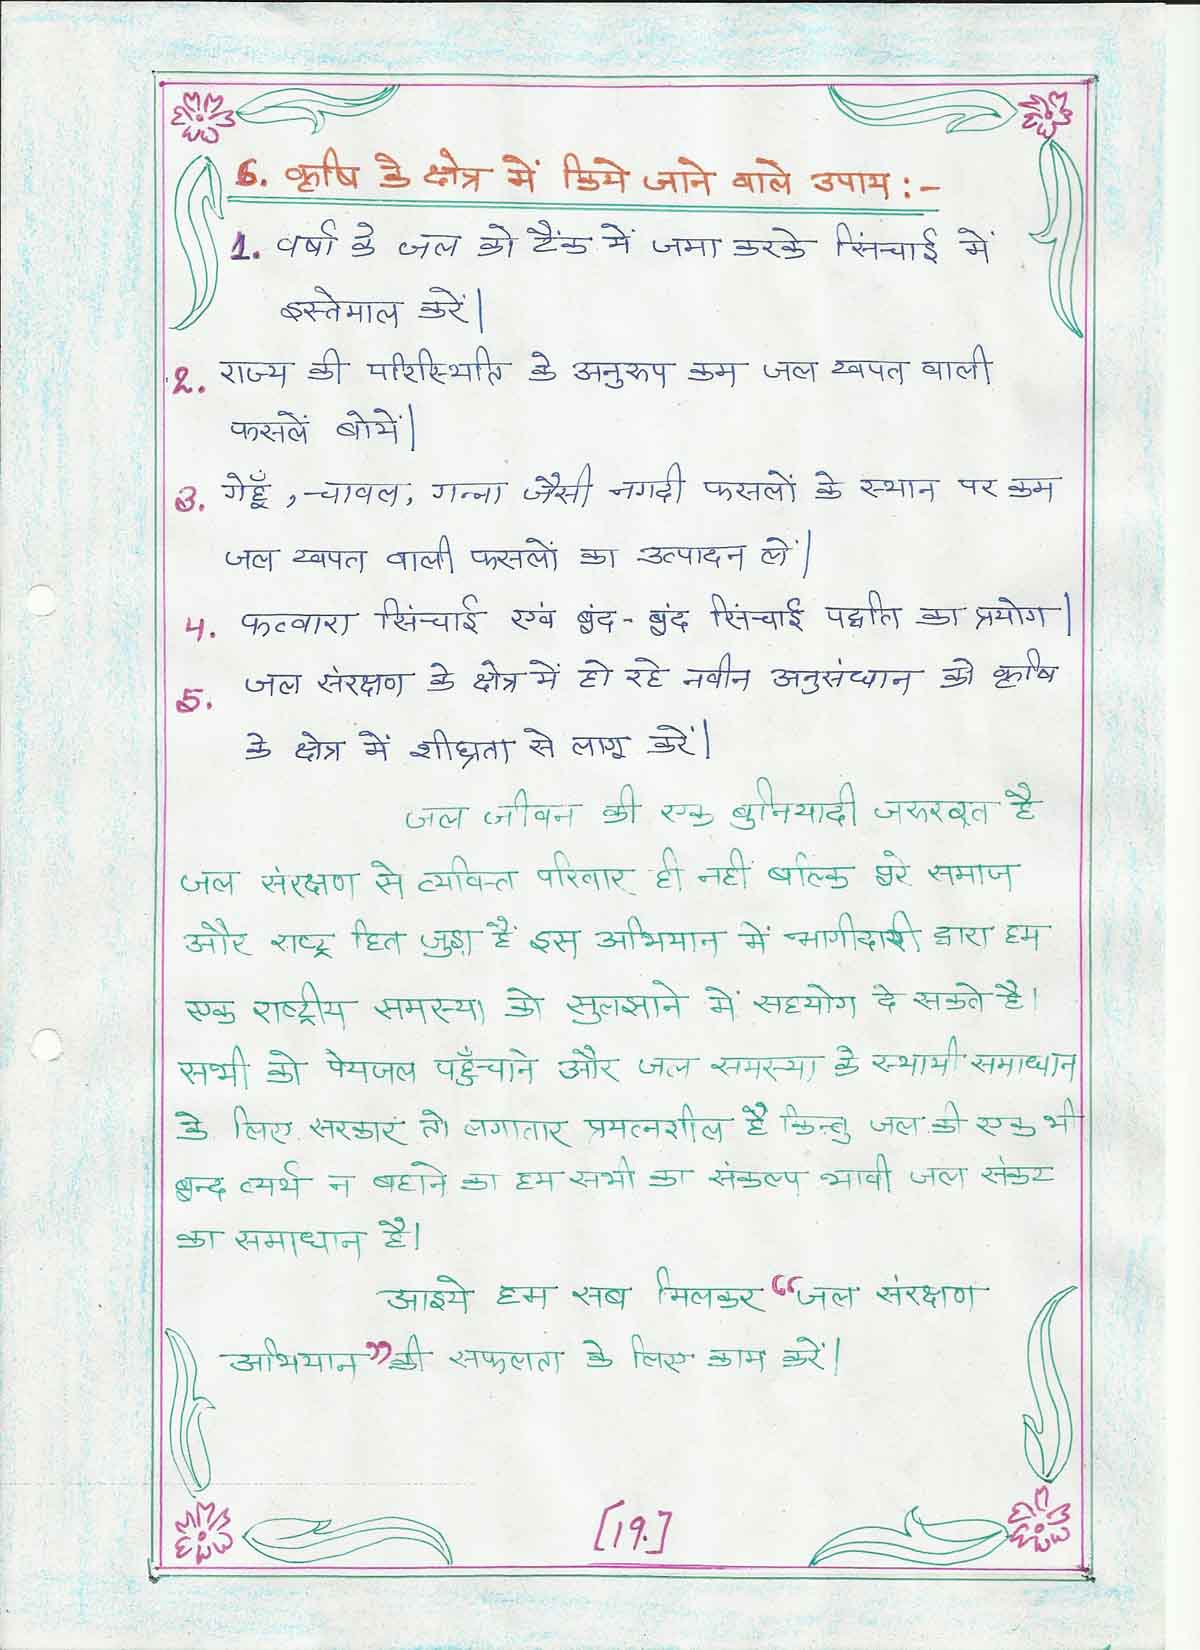 6. कृषि के क्षेत्र में किये जाने वाले उपाय :-
1. वर्षा के जल को टैंक में जमा करके सिंचाई में
इस्तेमाल करें|
2. राज्य की परिस्थिति के अनुरुप कम जल खपत वाली
फसलें बोयें|
3. गेहूँ , चावल, गन्ना जैसी नगदी फसलों के स्थान पर कम
जल खपत वाली फसलों का उत्पादन लें|
4. फव्वारा सिंचाई एवं बुंद - बुंद सिंचाई पद्धति का प्रयोग|
5. जल संरक्षण के क्षेत्र में हो रहे नवीन अनुसंधान को कृषि
के क्षेत्र में शीघ्रता से लागू करें|
जल जीवन की एक बुनियादी जरुरत है
जल संरक्षण से व्यक्ति परिवार ही नहीं बल्कि पुरे समाज
और राष्ट्र हित जुड़ा हैं इस अभियान में भागीदारी द्वारा हम
एक राष्ट्रीय समस्या को सुलझाने में सहयोग दे सकते है।
सभी को पेयजल पहुँचाने और जल समस्या के स्थायी समाधान
के लिए सरकार तो लगातार प्रयत्नशील है किन्तु जल की एक भी
बुन्द व्यर्थ न बहाने का हम सभी का संकल्प भावी जल संकट
का समाधान है।
आइये हम सब मिलकर “जल संरक्षण
अभियान” की सफलता के लिए काम करें|
[19.]